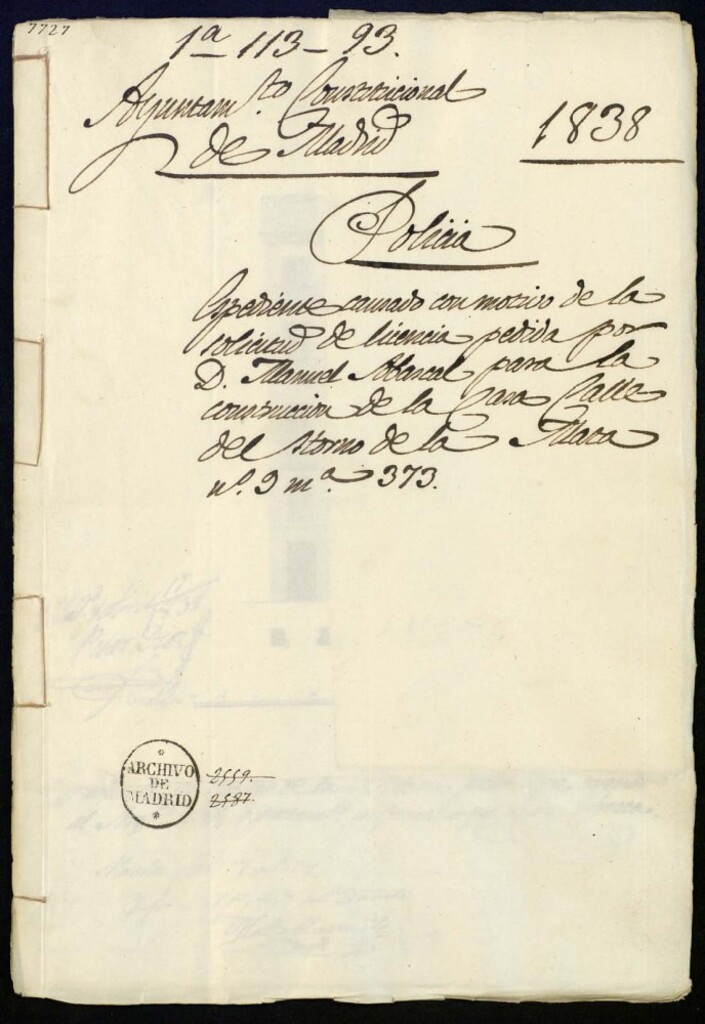 7727
1ª 113-93.
Ayuntamto Constitucional
de Madrid
1838
Policia
Espediente causado con motivo de la
solicitud de licencia pedida por
D. Manuel Abascal para la
construccion de la Casa Calle
del Horno de la Mata
nº. 9 mª. 373.
ARCHIVO
DE
MADRID
2559.
2587.